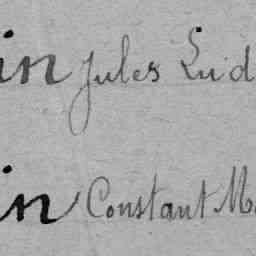 in Jules Lud
in Constant Ma